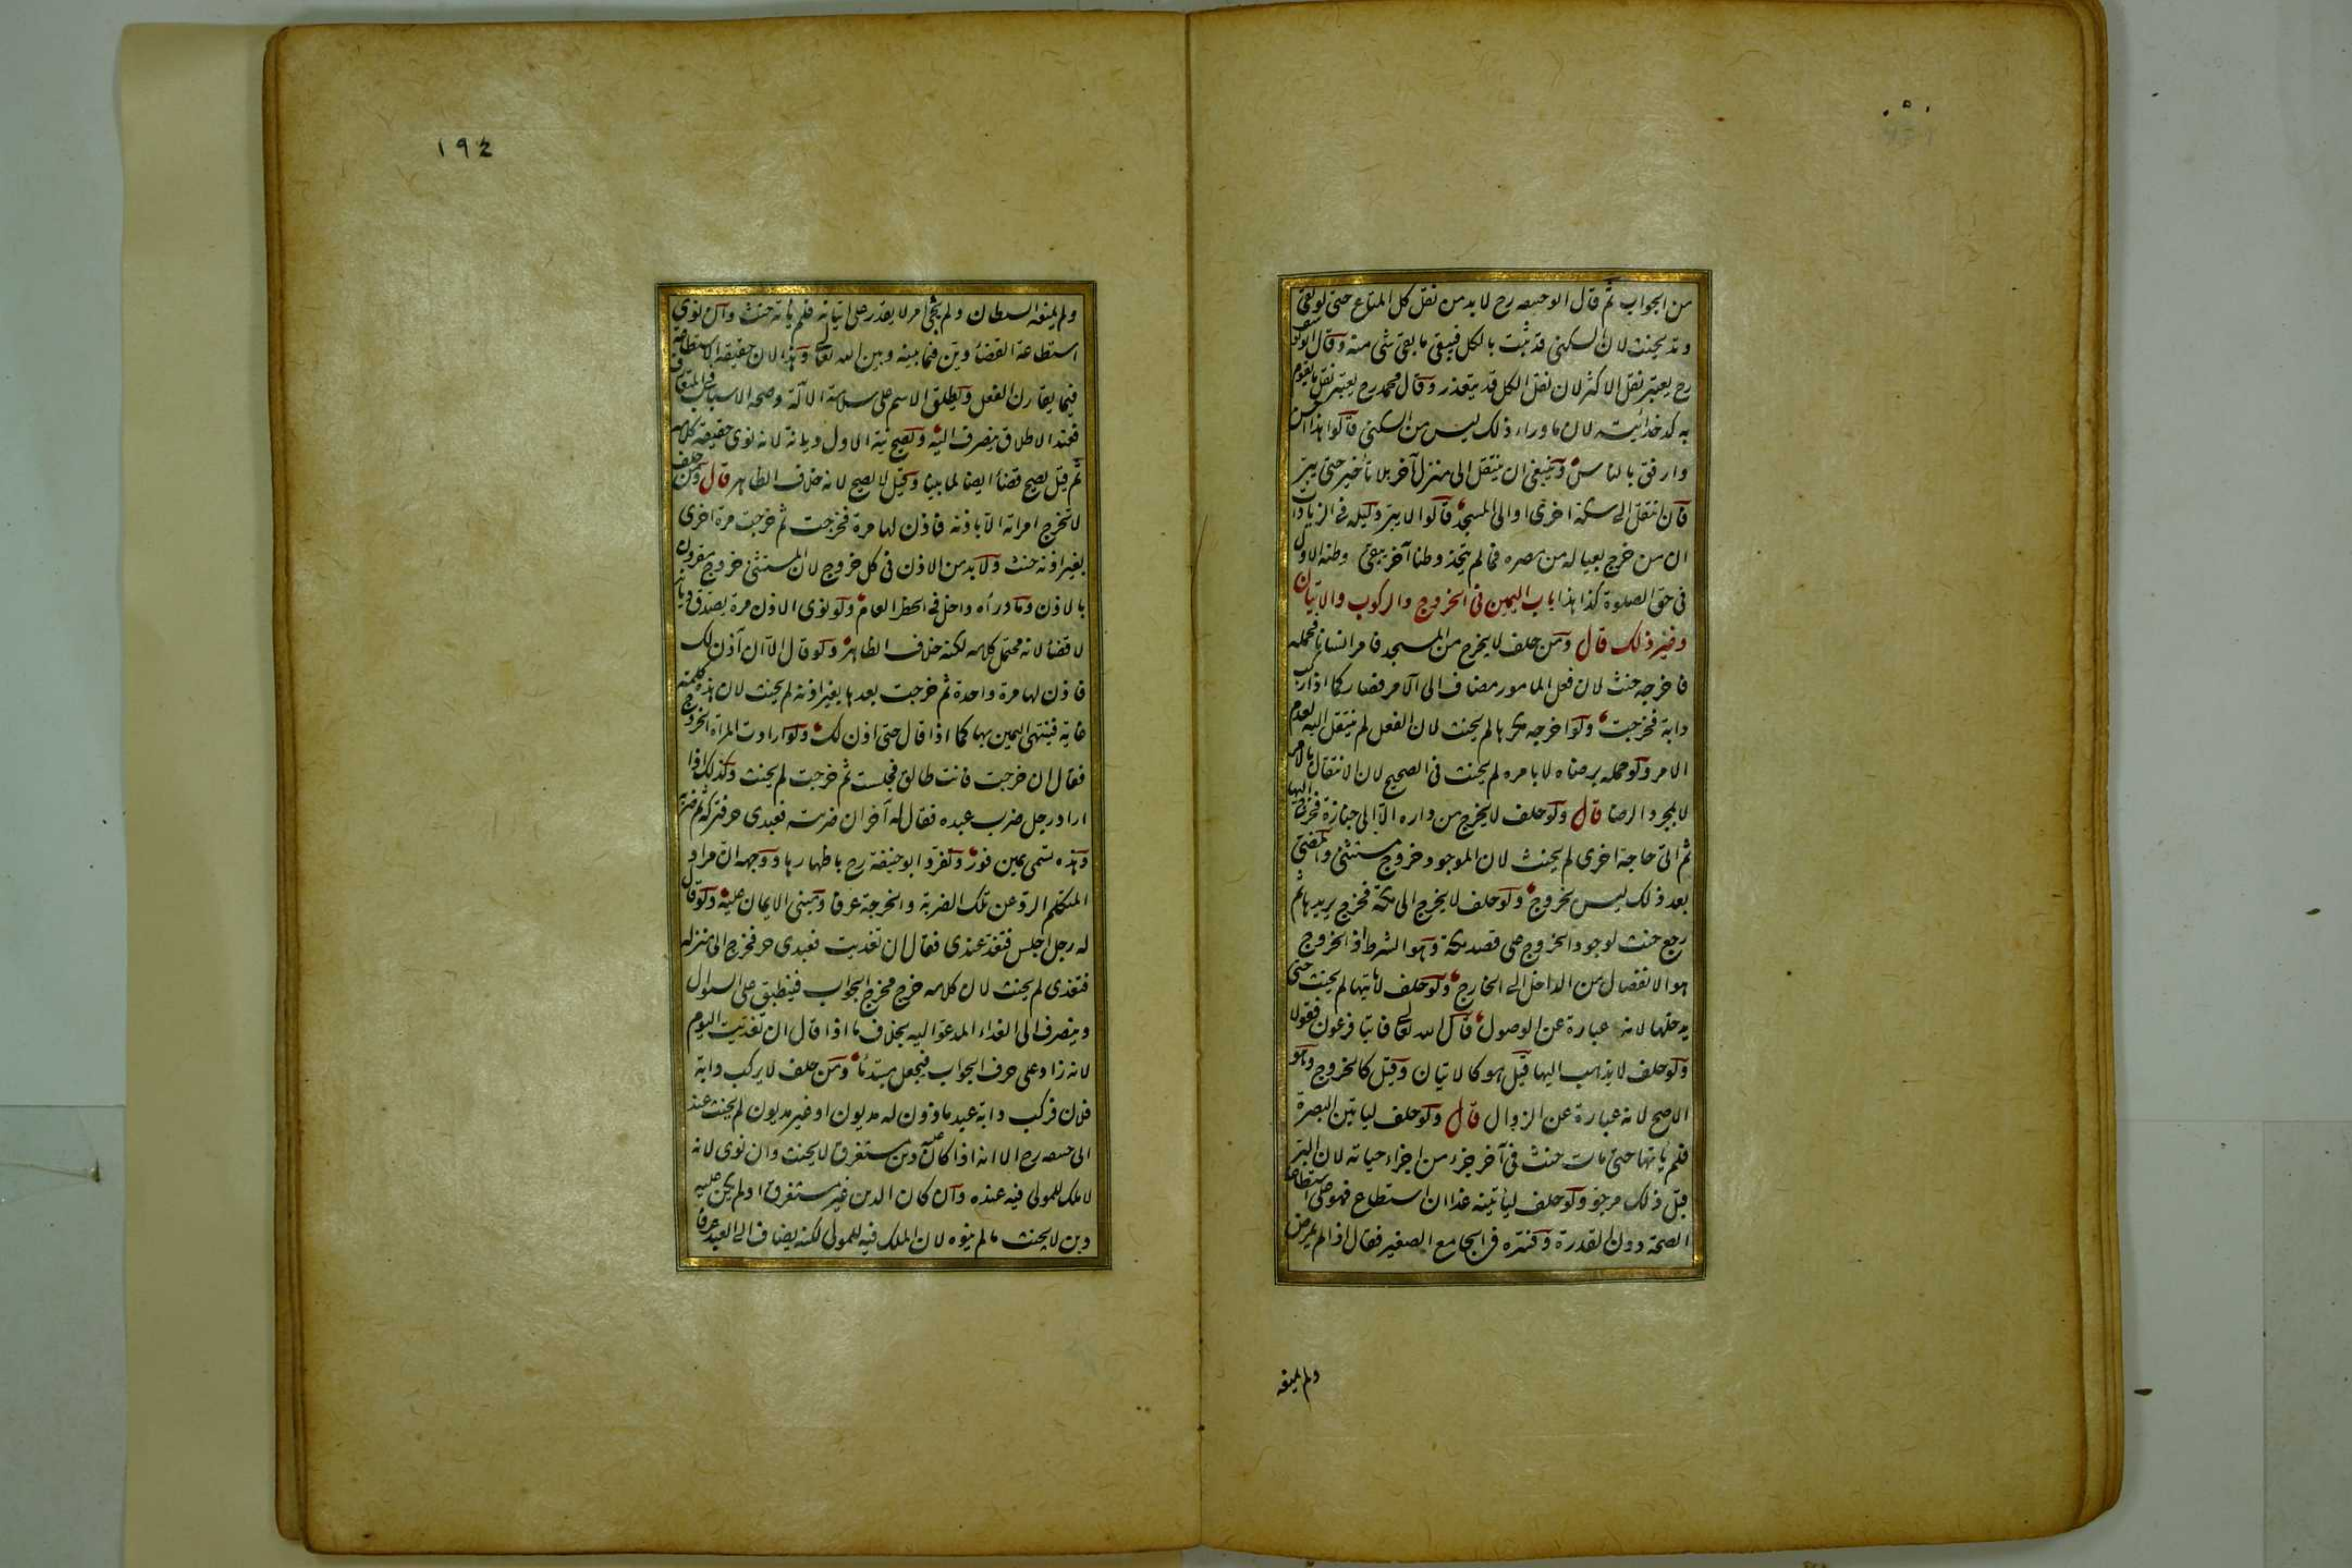 من الجواب ثم قال ابو حنيفه رح لا بد من نقل كل المتاع حتى لو بقى
وتد يحنث لان السكنى قد ثبتت بالكل فيبقى ما بقى شى منه وقال ابو يوسف
رح يعتبر نقل الاكثر لان نقل الكل قد يتعذر وقال محمد رح يعتبر نقل ما يقوم
به كدخدائيته لان ما وراء ذلك ليس من السكنى قالوا هذا احسن
وارفق بالناس وينبغى ان ينتقل الى منزل آخر بلا تأخير حتى يبر
فان انتقل الى سكة اخرى او الى المسجد قالوا لا يبر دليله فى الزيادات
ان من خرج بعياله من مصره فما لم يتخذ وطنا آخر يبقى وطنه الاول
فى حق الصلوة كذا هذا باب اليمين فى الخروج والركوب والاتيان
وغير ذلك قال ومن حلف لا يخرج من المسجد فامر انسانا فحمله
فاخرجه حنث لان فعل المامور مضاف الى الآمر فصار كما اذا ركب
دابة فخرجت ولو اخرجه مكرها لم يحنث لان الفعل لم ينتقل اليه لعدم
الامر ولو حمله برضاه لا بامره لم يحنث فى الصحيح لان الانتقال بالامر
لا بمجرد الرضا قال ولو حلف لا يخرج من داره الا الى جنازة فخرج اليها
ثم اتى حاجة اخرى لم يحنث لان الموجود خروج مستثنى والمضى
بعد ذلك ليس بخروج ولو حلف لا يخرج الى مكة فخرج يريدها ثم
رجع حنث لوجود الخروج على قصد مكة وهو الشرط اذ الخروج
هو الانفصال من الداخل الى الخارج ولو حلف لا ياتيها لم يحنث حتى
يدخلها لانه عبارة عن الوصول قال الله تعالى فاتيا فرعون فقولا
ولو حلف لا يذهب اليها قيل هو كالاتيان وقيل كالخروج وهو
الاصح لانه عبارة عن الزوال قال ولو حلف لياتين البصرة
فلم يأتها حتى مات حنث فى آخر جزء من اجزاء حياته لان البر
قبل ذلك مرجو ولو حلف ليأتينه غدا ان استطاع فهو على استطاعة
الصحة دون القدرة وفسره فى الجامع الصغير فقال اذا لم يمرض
ولم يمنعه
١٩٤
ولم يمنعه السلطان ولم يجئ امر لا يقدر على اتيانه فلم يأته حنث وان نوى
استطاعة القضاء دين فيما بينه وبين الله تعالى وهذا لان حقيقة الاستطاعة
فيما يقارن الفعل ويطلق الاسم على سلامة الآلة وصحة الاسباب فى المتعارف
فعند الاطلاق ينصرف اليه وتصح نية الاول ديانة لانه نوى حقيقة كلامه
ثم قيل يصح قضاء ايضا لما بينا وقيل لا يصح لانه خلاف الظاهر قال ومن حلف
لا تخرج امراته الا باذنه فاذن لها مرة فخرجت ثم خرجت مرة اخرى
بغير اذنه حنث ولا بد من الاذن فى كل خروج لان المستثنى خروج مقرون
بالاذن وما وراه داخل فى الحظر العام ولو نوى الاذن مرة يصدق ديانة
لا قضاء لانه محتمل كلامه لكنه خلاف الظاهر ولو قال الا ان آذن لك
فاذن لها مرة واحدة ثم خرجت بعدها بغير اذنه لم يحنث لان هذه كلمة
غاية فينتهى اليمين بها كما اذا قال حتى اذن لك ولو ارادت المرأة الخروج
فقال ان خرجت فانت طالق فجلست ثم خرجت لم يحنث وكذلك اذا
اراد رجل ضرب عبده فقال له آخر ان ضربته فعبدى حر فتركه ثم ضربه
وهذه تسمى يمين فور وتفرد ابو حنيفة رح باظهارها ووجهه ان مراد
المتكلم الرد عن تلك الضربة والخرجة عرفا ومبنى الايمان عليه ولو قال
له رجل اجلس فتغد عندى فقال ان تغديت فعبدى حر فخرج الى منزله
فتغدى لم يحنث لان كلامه خرج مخرج الجواب فينطبق على السوال
وينصرف الى الغداء المدعو اليه بخلاف ما اذا قال ان تغديت اليوم
لانه زاد على حرف الجواب فيجعل مبتدئا ومن حلف لا يركب دابة
فلان فركب دابة عبد ماذون له مديون او غير مديون لم يحنث عند
ابى حنيفه رح الا انه اذا كان عليه دين مستغرق لا يحنث وان نوى لانه
لا ملك للمولى فيه عنده وان كان الدين غير مستغرق او لم يكن عليه
دين لا يحنث ما لم ينوه لان الملك فيه للمولى لكنه يضاف الى العبد عرفا